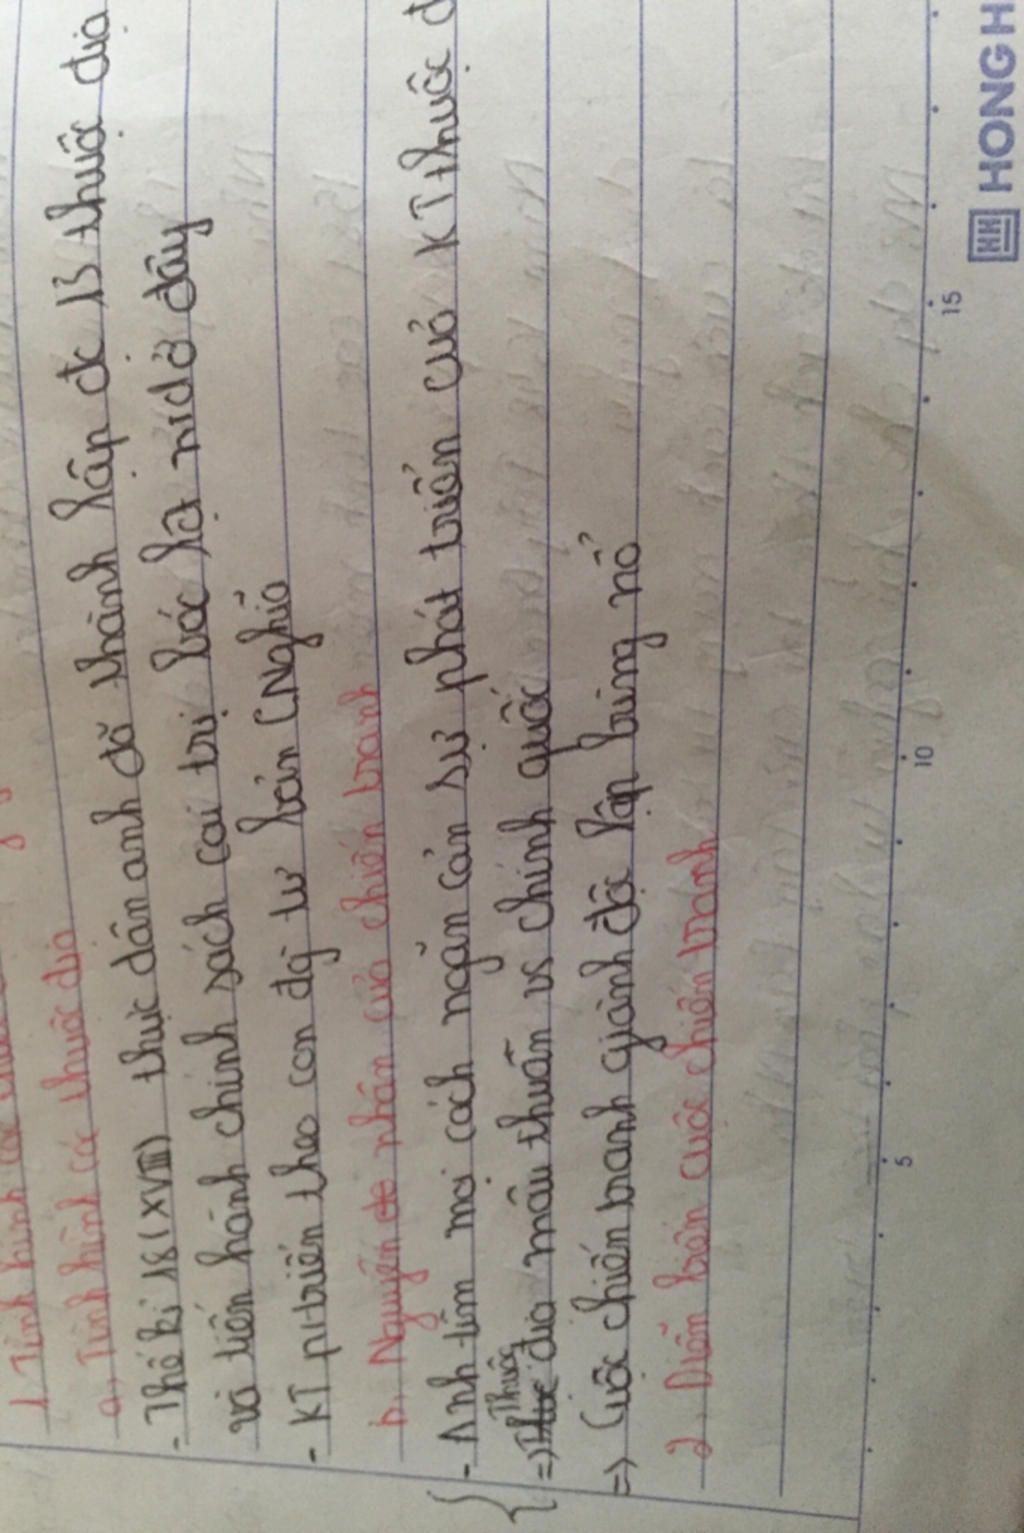 1. Tình hình các thuộc
a, Tình hình các thuộc địa
- Thế kỉ 18 (XVIII) thực dân anh đã thành lập đc 13 thuộc địa
và tiến hành chính sách cai trị, bóc lột ng ở đây
- KT p.triển theo con đg tư bản C.Nghĩa
b, Nguyên nhân của chiến tranh
- Anh tìm mọi cách ngăn cản sự phát triển của KT thuộc đ
=> Thuộc địa mâu thuẫn vs chính quốc
=> Cuộc chiến tranh giành độc lập bùng nổ
2, Diễn biến cuộc chiến tranh
5 10 15
HH HONG H